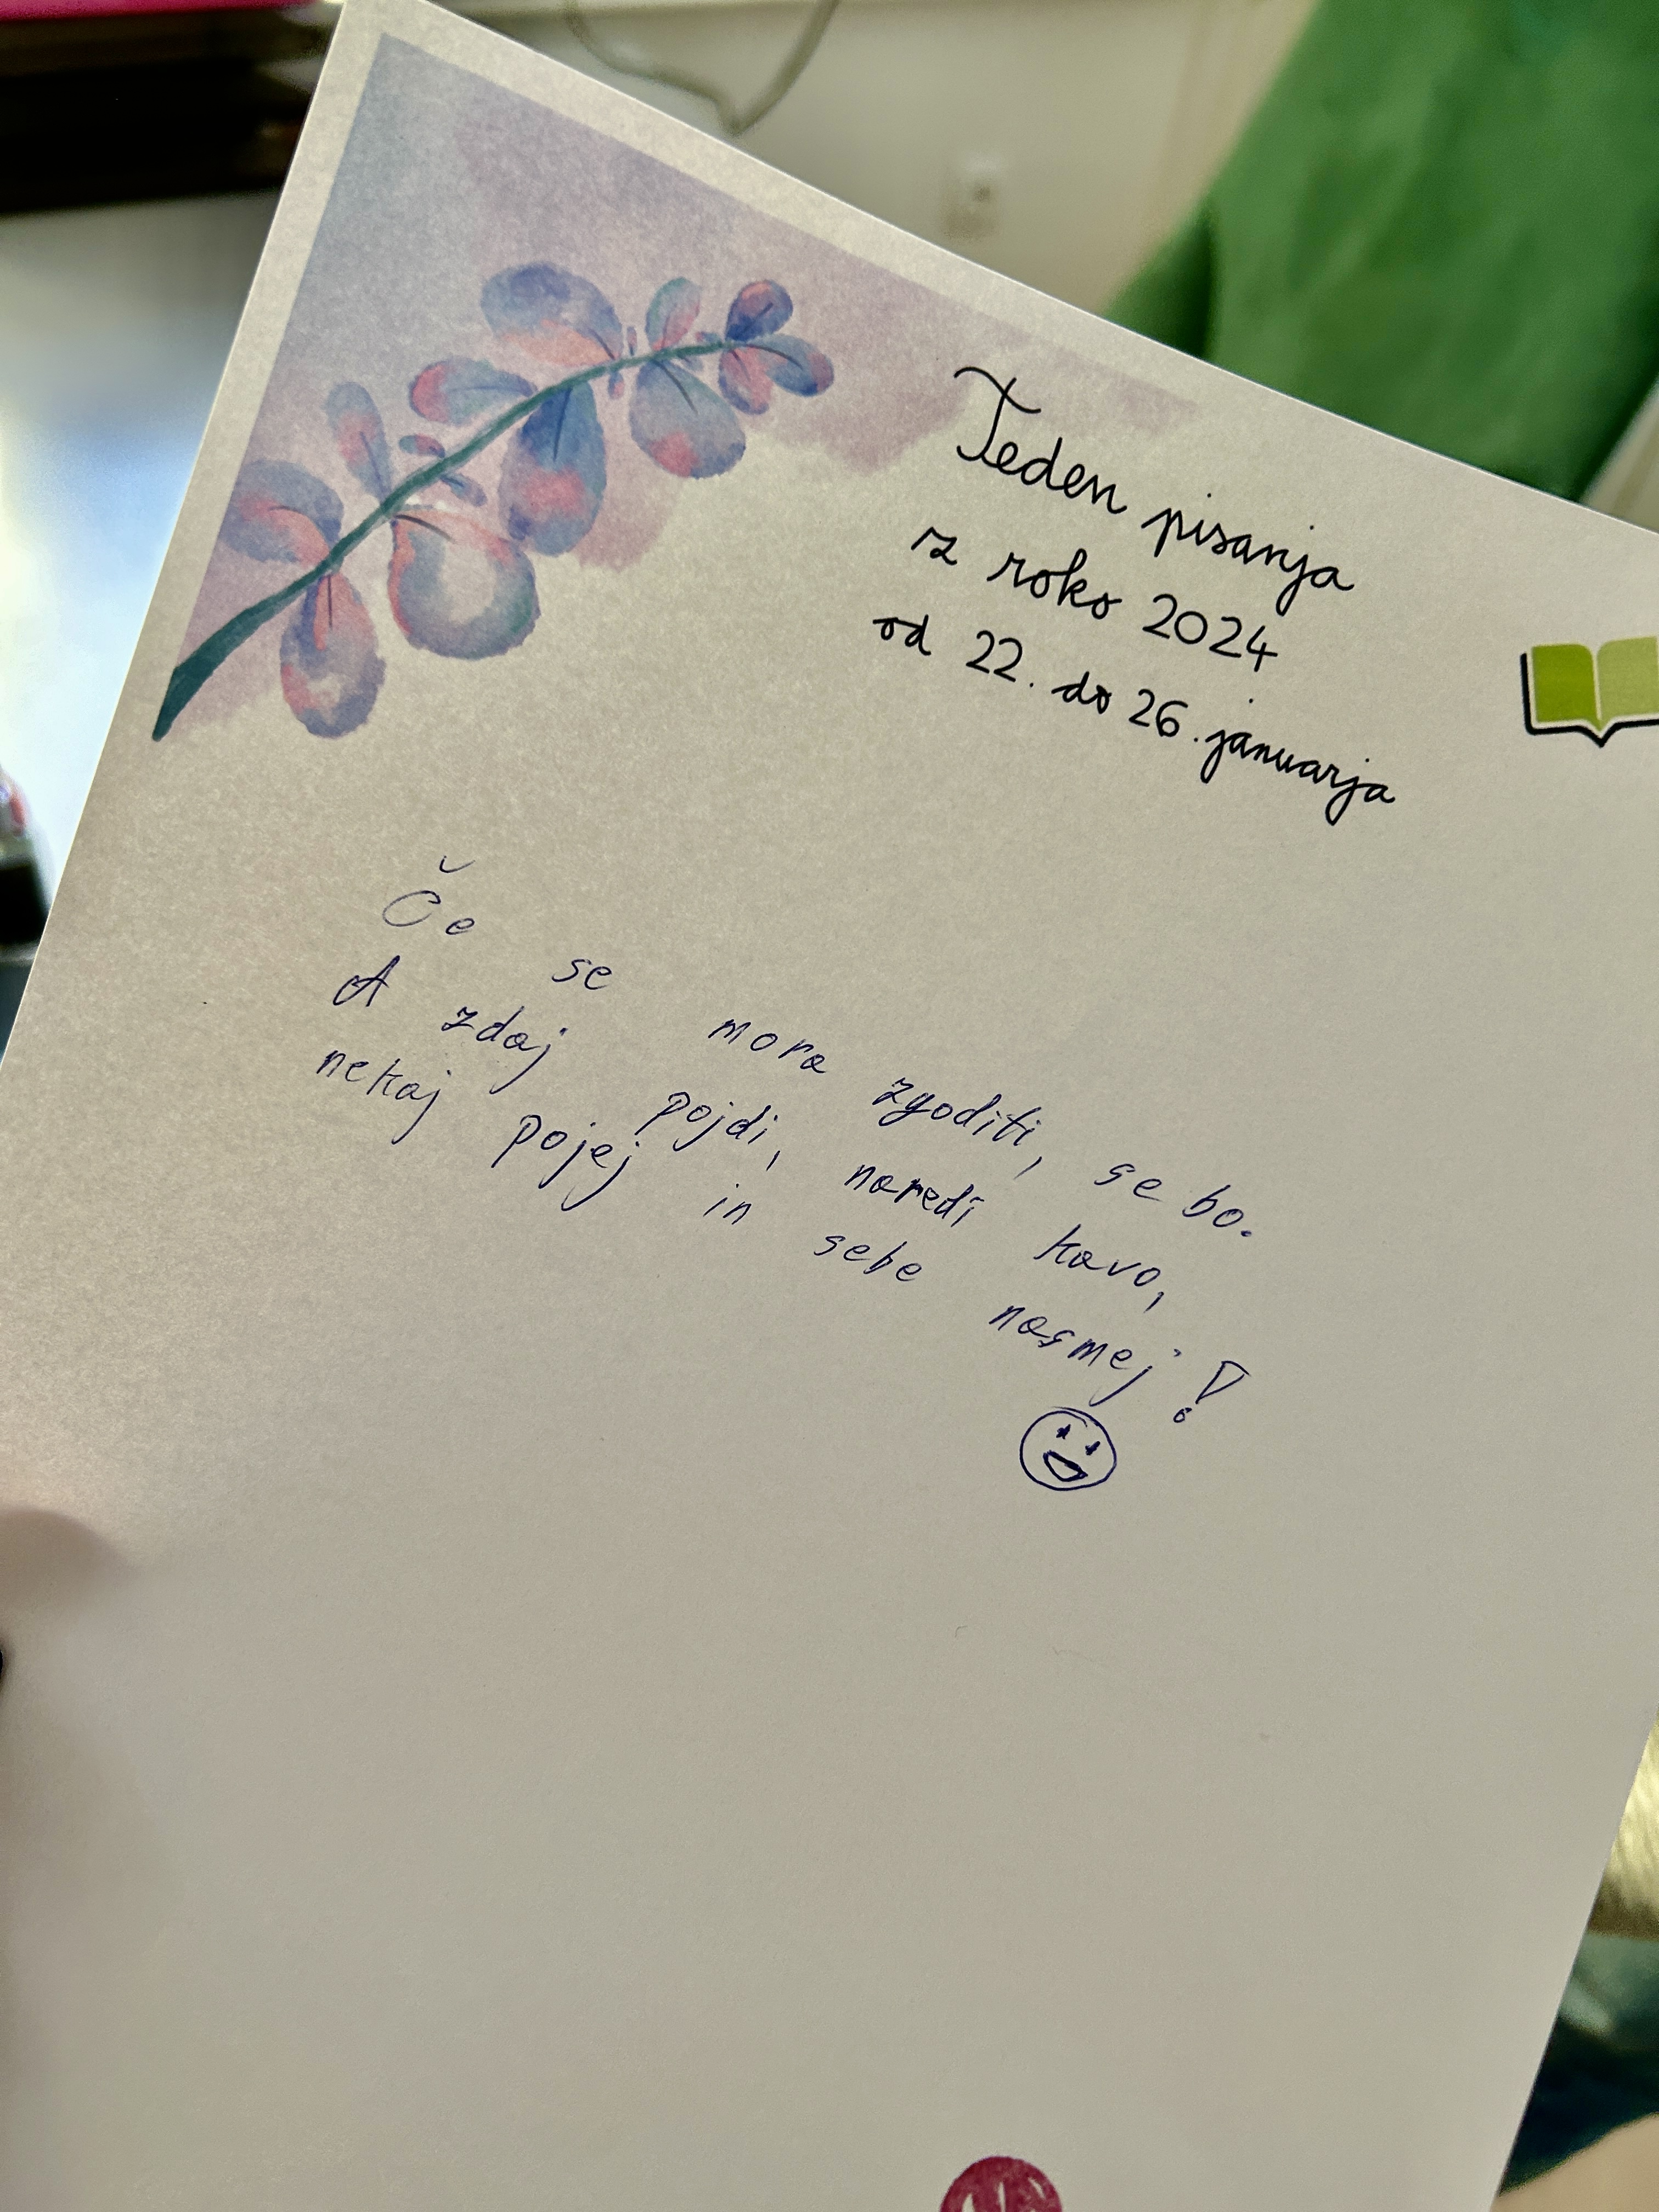 Teden pisanja
z roko 2024
od 22. do 26. januarja
Če se mora zgoditi, se bo.
A zdaj pojdi, naredi kavo,
nekaj pojej in sebe nasmej!